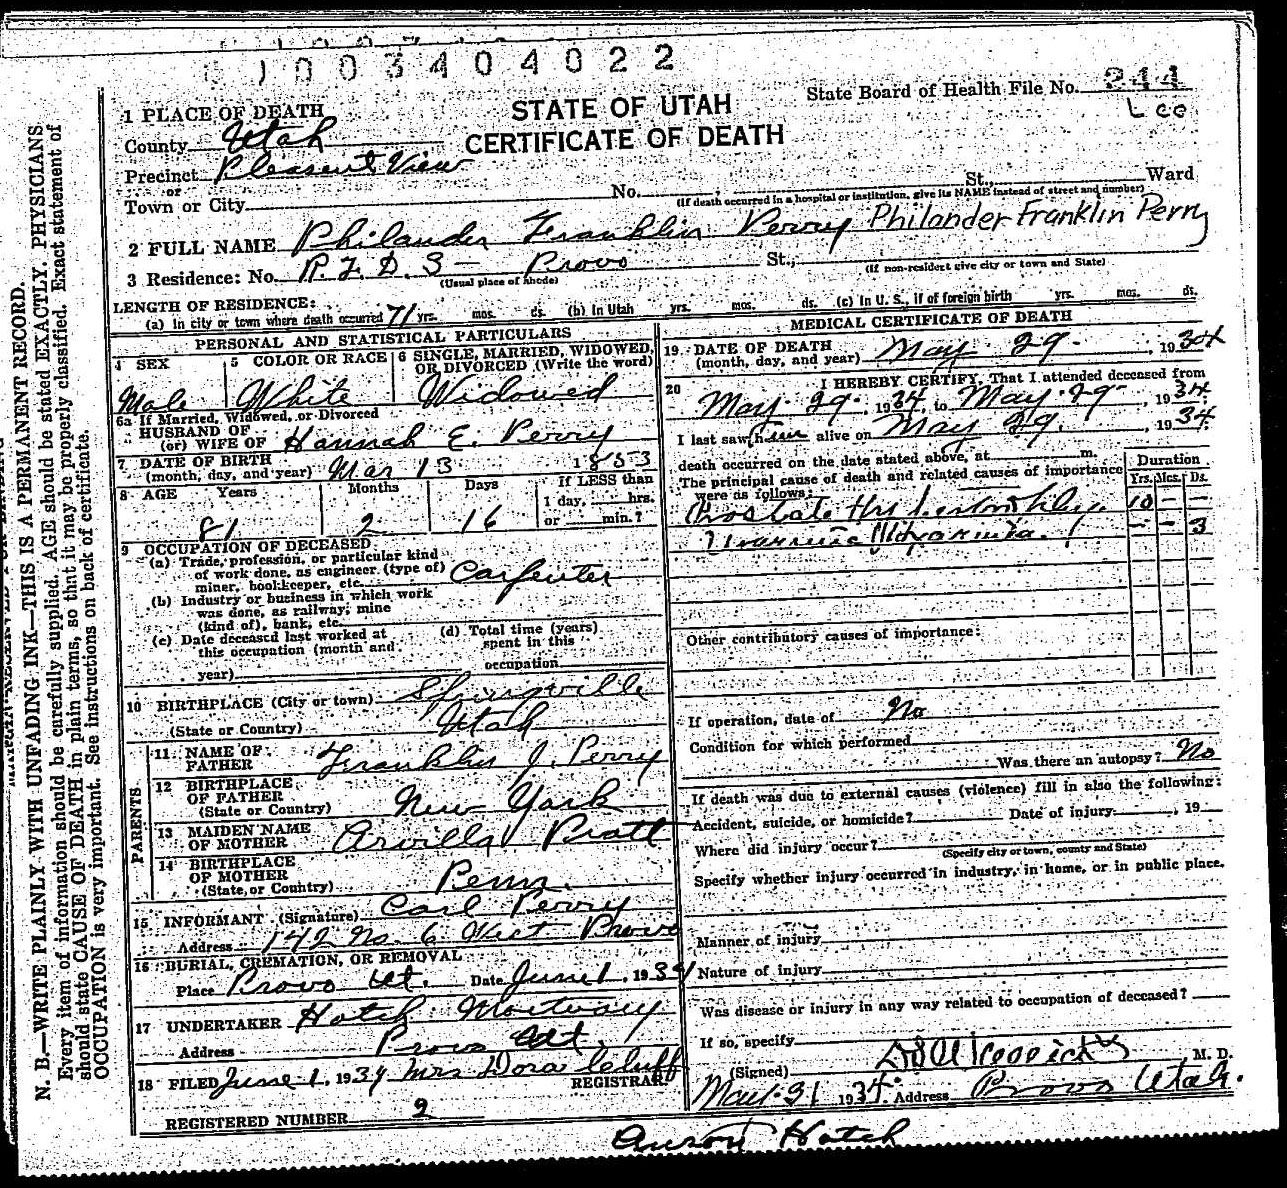 1003404022
State Board of Health File No. 244
Lee
STATE OF UTAH
CERTIFICATE OF DEATH
1 PLACE OF DEATH
County Utah
Precinct Pleasent View
or
Town or City No. St., Ward
(If death occurred in a hospital or institution, give its NAME instead of street and number)
2 FULL NAME Philander Franklin Perry Philander Franklin Perry
3 Residence: No. R.F.D. 3 - Provo St.,
(Usual place of abode) (If non-resident give city or town and State)
LENGTH OF RESIDENCE:
(a) In city or town where death occurred 71 yrs. mos. ds. (b) In Utah yrs. mos. ds. (c) In U. S., if of foreign birth yrs. mos. ds.
PERSONAL AND STATISTICAL PARTICULARS
4 SEX Male
5 COLOR OR RACE White
6 SINGLE, MARRIED, WIDOWED, OR DIVORCED (Write the word) Widowed
6a If Married, Widowed, or Divorced
HUSBAND OF
(or) WIFE OF Hannah E. Perry
7 DATE OF BIRTH
(month, day, and year) Mar 13 1853
8 AGE Years Months Days If LESS than
1 day, hrs.
81 2 16 or min.?
9 OCCUPATION OF DECEASED
(a) Trade, profession, or particular kind
of work done, as engineer (type of)
miner, bookkeeper, etc. Carpenter
(b) Industry or business in which work
was done, as railway, mine
(kind of), bank, etc.
(c) Date deceased last worked at
this occupation (month and
year)
(d) Total time (years)
spent in this
occupation
10 BIRTHPLACE (City or town) Springville
(State or Country) Utah
PARENTS
11 NAME OF
FATHER Franklin J. Perry
12 BIRTHPLACE
OF FATHER
(State or Country) New York
13 MAIDEN NAME
OF MOTHER Arvilla Pratt
14 BIRTHPLACE
OF MOTHER
(State, or Country) Penn.
15 INFORMANT (Signature) Carl Perry
Address 142 No. 6 West Provo
16 BURIAL, CREMATION, OR REMOVAL
Place Provo Ut. Date June 1, 1934
17 UNDERTAKER Hatch Mortuary
Address Provo Ut.
18 FILED June 1, 1934 Mrs Dora Cluff
REGISTRAR
REGISTERED NUMBER 2
MEDICAL CERTIFICATE OF DEATH
19 DATE OF DEATH
(month, day, and year) May 29, 1934
20 I HEREBY CERTIFY, That I attended deceased from
May 29, 1934, to May 29, 1934
I last saw him alive on May 29, 1934
death occurred on the date stated above, at m.
The principal cause of death and related causes of importance
were as follows:
Duration
Yrs. Mcs. Ds.
Prostate 10 - -
- - 3
Other contributory causes of importance:
If operation, date of No
Condition for which performed
Was there an autopsy? No
If death was due to external causes (violence) fill in also the following:
Accident, suicide, or homicide? Date of injury , 19
Where did injury occur?
(Specify city or town, county and State)
Specify whether injury occurred in industry, in home, or in public place.
Manner of injury
Nature of injury
Was disease or injury in any way related to occupation of deceased?
If so, specify
(Signed) M. D.
May 31 1934 Address Provo Utah.
Hatch
N. B.—WRITE PLAINLY WITH UNFADING INK—THIS IS A PERMANENT RECORD.
Every item of information should be carefully supplied. AGE should be stated EXACTLY. PHYSICIANS
should state CAUSE OF DEATH in plain terms, so that it may be properly classified. Exact statement of
OCCUPATION is very important. See instructions on back of certificate.